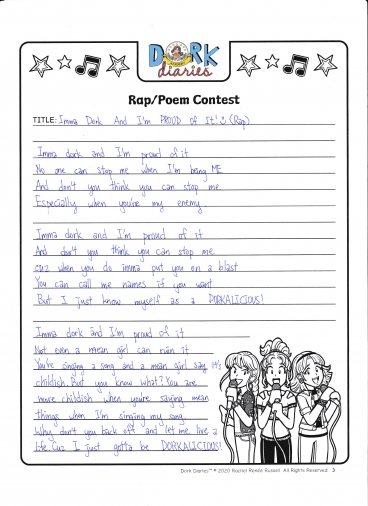 DORK
diaries
Rap/Poem Contest
TITLE: Imma Dork And I'm PROUD of It! (Rap)
Imma dork and I'm proud of it
No one can stop me when I'm being ME
And don't you think you can stop me
Especially when you're my enemy
Imma dork and I'm proud of it
And don't you think you can stop me
cuz when you do imma put you on a blast
You can call me names if you want
But I just know myself as a DORKALICIOUS!
Imma dork and I'm proud of it
Not even a mean girl can ruin it
You're singing a song and a mean girl say it's
childish. But you know what? You are
more childish when you're saying mean
things when I'm singing my song
Why don't you back off and let me live a
life. Cuz I just gotta be DORKALICIOUS!
Dork Diaries™ © 2020 Rachel Renée Russell. All Rights Reserved. 3